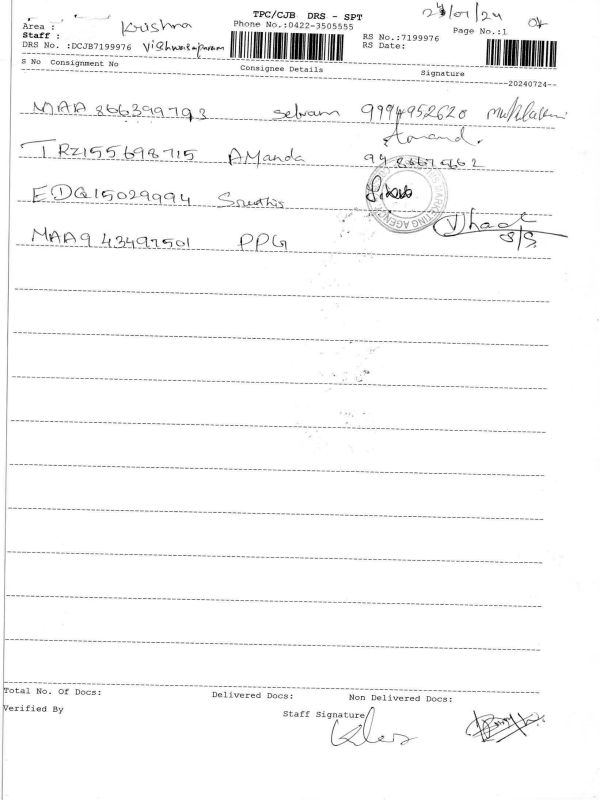 TPC/CJB DRS - SPT 24/07/24
Area : Krishna Phone No.:0422-3505555 Page No.:1
Staff : RS No.:7199976
DRS No. :DCJB7199976 RS Date:
S No Consignment No Consignee Details Signature
--20240724--
MAA 866399793 Selvam 9994952620
Anand.
TRZ155698715 AManda
EDQ15029994 Sruthis
MARKETING AGENC
MAA9 43497501 PPG
Total No. Of Docs: Delivered Docs: Non Delivered Docs:
Verified By Staff Signature